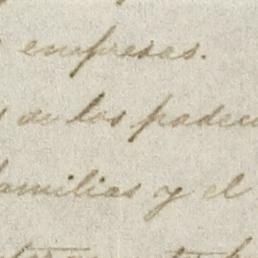 empresas.
de los padeci
familias y el